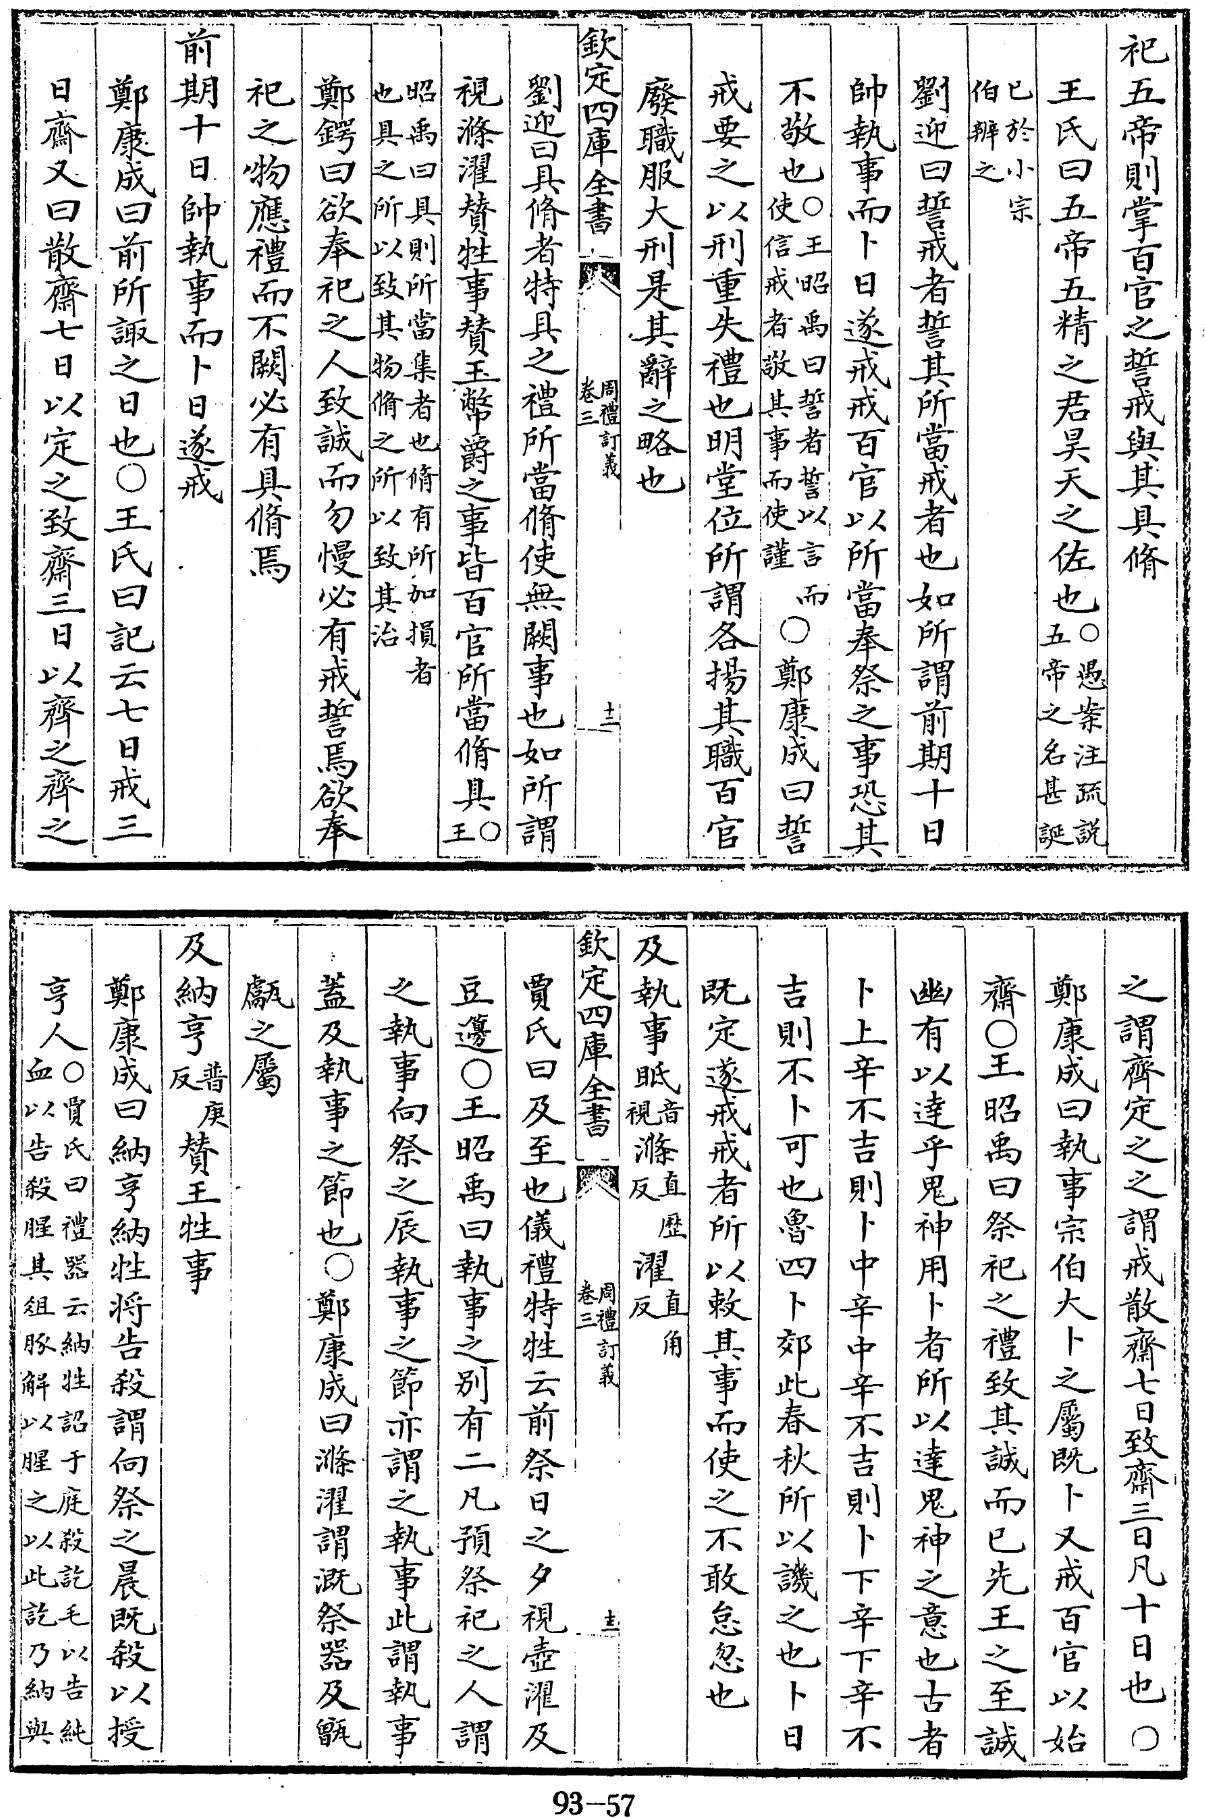 祀五帝則掌百官之誓戒與其具脩
王氏曰五帝五精之君昊天之佐也○愚案注疏説五帝之名甚誕
已於小宗伯辨之
劉迎曰誓戒者誓其所當戒者也如所謂前期十日
帥執事而卜日遂戒戒百官以所當奉祭之事恐其
不敬也○王昭禹曰誓者誓以言而使信戒者敬其事而使謹○鄭康成曰誓
戒要之以刑重失禮也明堂位所謂各揚其職百官
廢職服大刑是其辭之略也
欽定四庫全書 周禮訂義卷三 十二
劉迎曰具脩者特具之禮所當脩使無闕事也如所謂
視滌濯贊牲事贊玉幣爵之事皆百官所當脩具○王
昭禹曰具則所當集者也脩有所加損者也具之所以致其物脩之所以致其治
鄭鍔曰欲奉祀之人致誠而勿慢必有戒誓焉欲奉
祀之物應禮而不闕必有具脩焉
前期十日帥執事而卜日遂戒
鄭康成曰前所諏之日也○王氏曰記云七日戒三
日齋又曰散齋七日以定之致齋三日以齊之齊之
之謂齊定之之謂戒散齋七日致齋三日凡十日也○
鄭康成曰執事宗伯大卜之屬既卜又戒百官以始
齋○王昭禹曰祭祀之禮致其誠而已先王之至誠
幽有以達乎鬼神用卜者所以達鬼神之意也古者
卜上辛不吉則卜中辛中辛不吉則卜下辛下辛不
吉則不卜可也魯四卜郊此春秋所以譏之也卜日
既定遂戒戒者所以敕其事而使之不敢怠忽也
及執事眂音視滌直歷反濯直角反
欽定四庫全書 周禮訂義卷三 十三
賈氏曰及至也儀禮特牲云前祭日之夕視壺濯及
豆籩○王昭禹曰執事之别有二凡預祭祀之人謂
之執事向祭之辰執事之節亦謂之執事此謂執事
蓋及執事之節也○鄭康成曰滌濯謂溉祭器及甑
甗之屬
及納亨普庚反贊王牲事
鄭康成曰納亨納牲將告殺謂向祭之晨既殺以授
亨人○賈氏曰禮器云納牲詔于庭殺訖毛以告純血以告殺腥其俎豚解以腥之以此訖乃納與
93-57